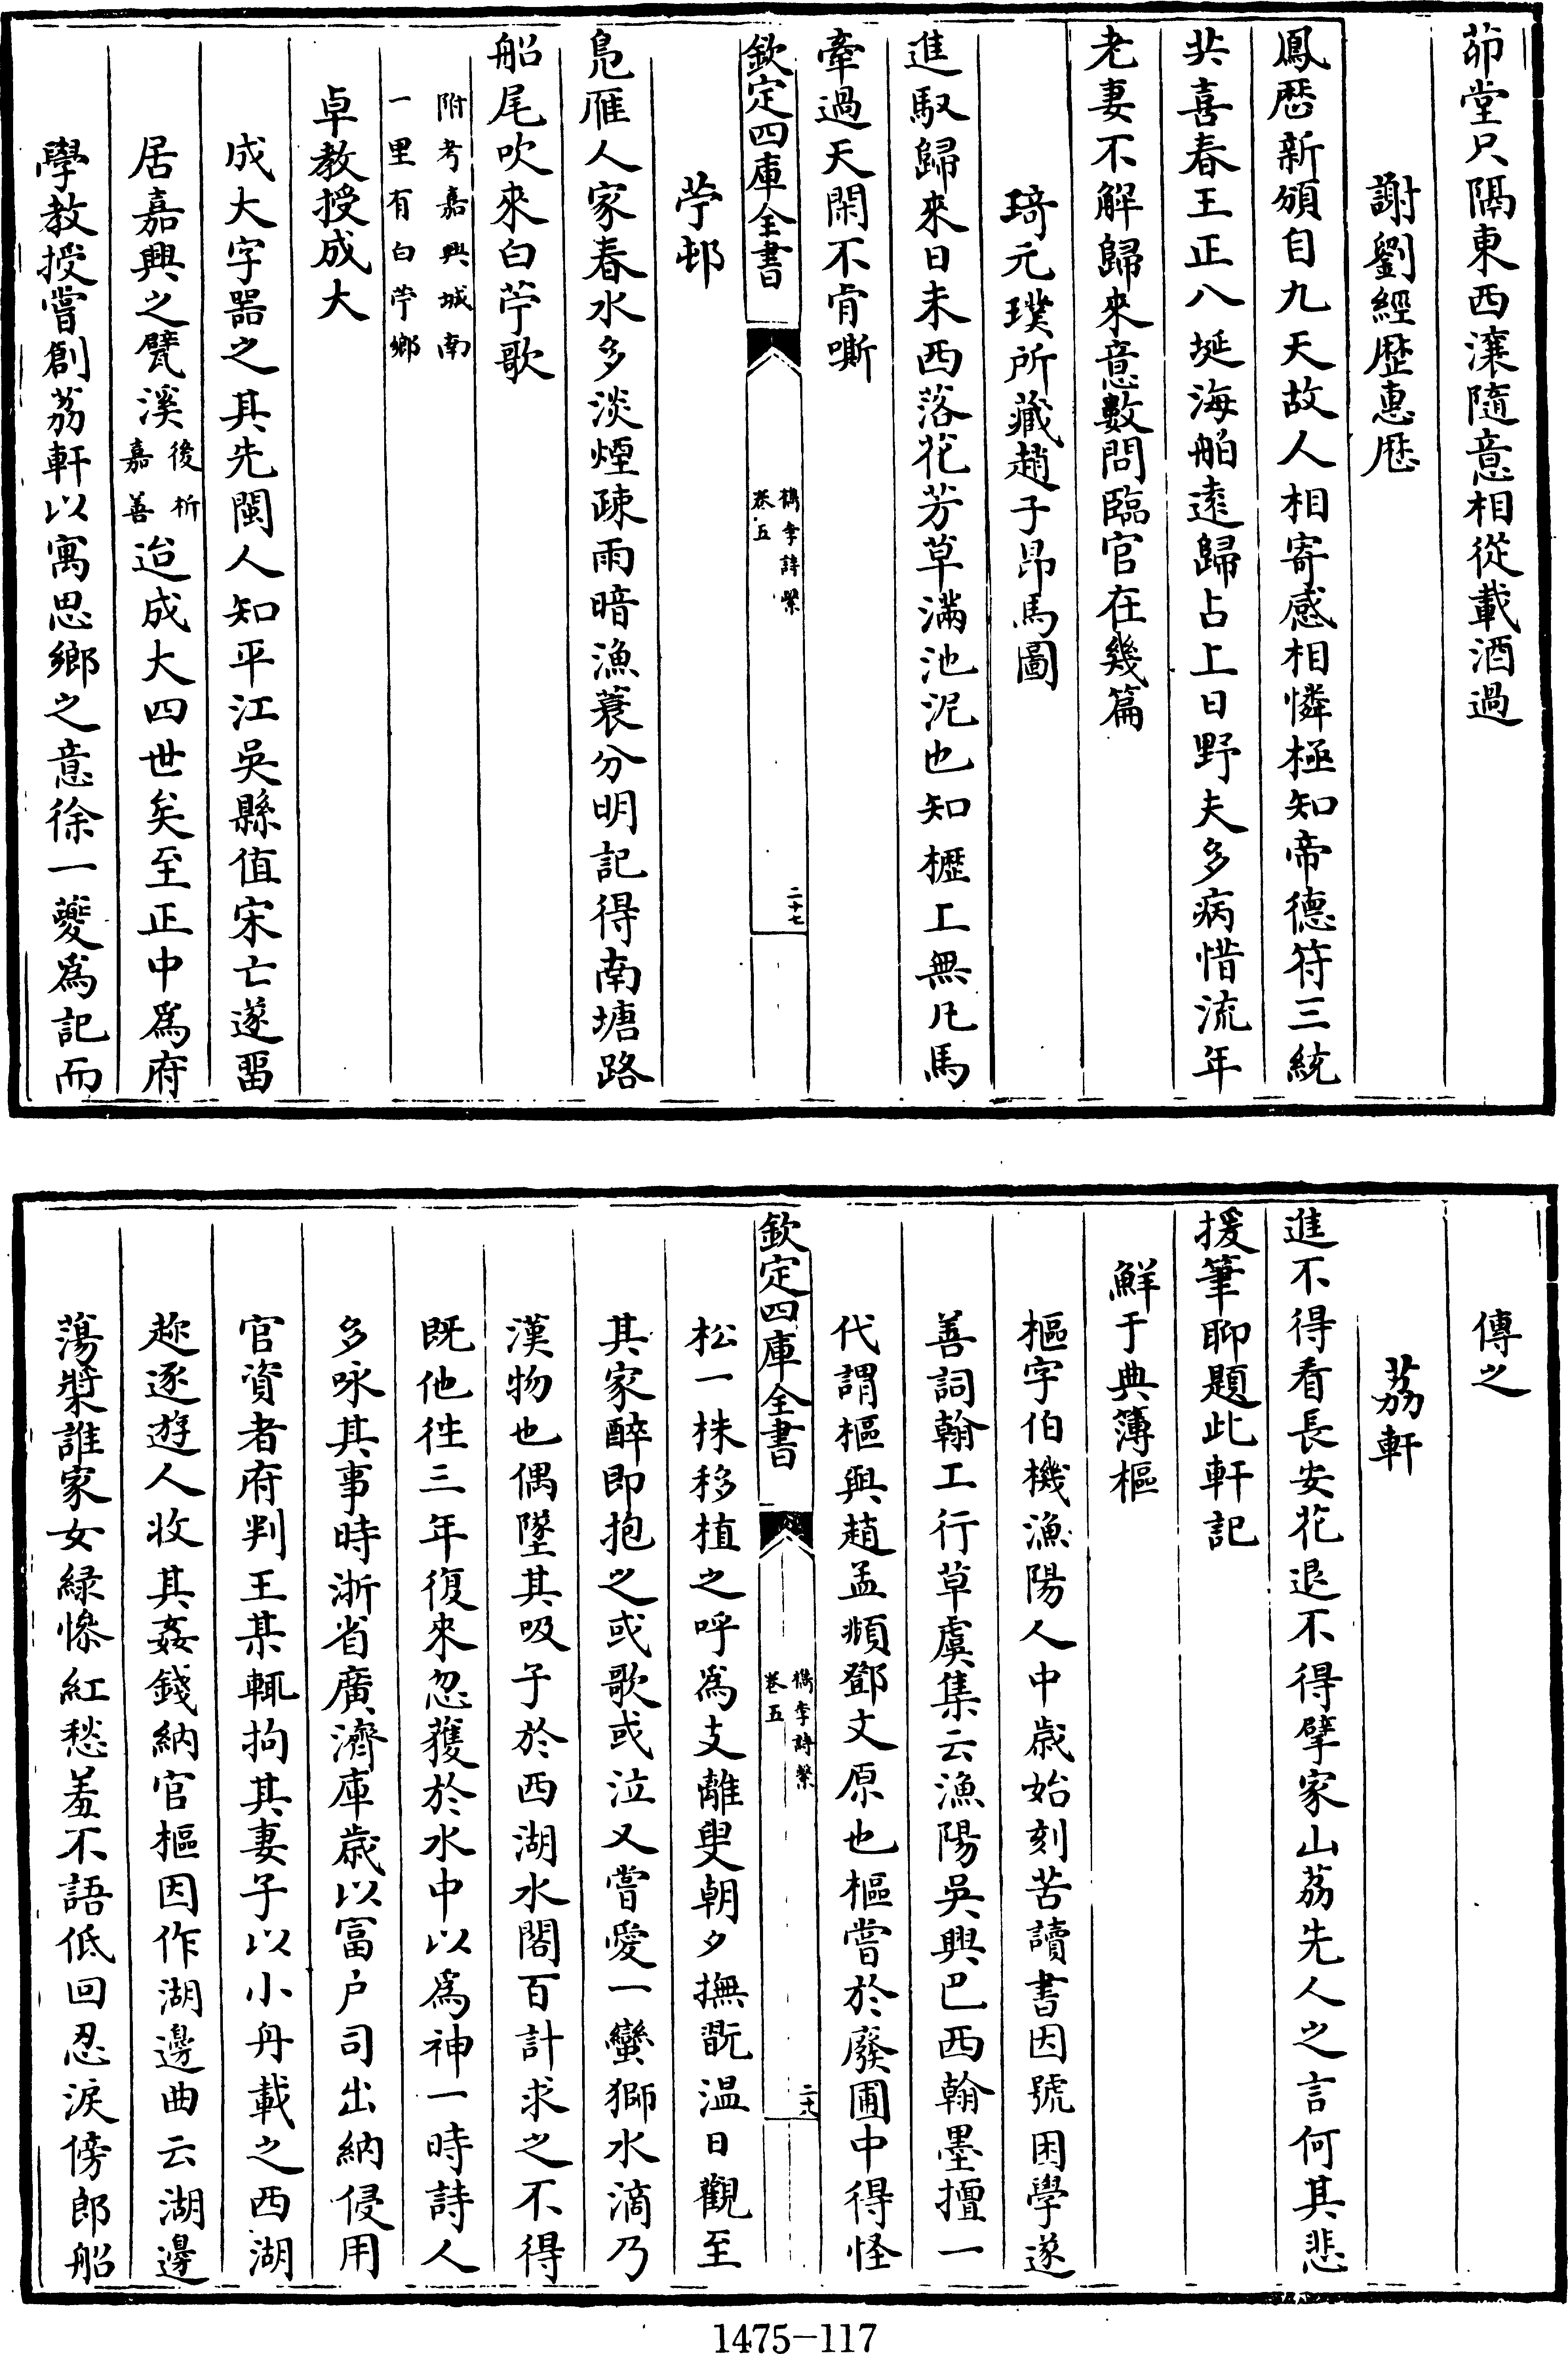 茆堂只隔東西瀼隨意相從載酒過
謝劉經歴惠厯
鳳厯新頒自九天故人相寄感相憐極知帝德符三統
共喜春王正八埏海舶遠歸占上日野夫多病惜流年
老妻不解歸來意數問臨官在幾篇
琦元璞所藏趙子昂馬圖
進馭歸來日未西落花芳草滿池泥也知櫪上無凡馬
牽過天閑不肯嘶
欽定四庫全書
檇李詩繫
卷五
二十七
苧邨
鳧雁人家春水多淡煙疎雨暗漁蓑分明記得南塘路
船尾吹來白苧歌
附考嘉興城南
一里有白苧鄉
卓教授成大
成大字器之其先閩人知平江吳縣值宋亡遂畱
居嘉興之甓溪後析嘉善迨成大四世矣至正中爲府
學教授嘗創荔軒以寓思鄉之意徐一夔爲記而
傳之
荔軒
進不得看長安花退不得擘家山荔先人之言何其悲
援筆聊題此軒記
鮮于典簿樞
樞字伯機漁陽人中歲始刻苦讀書因號困學遂
善詞翰工行草虞集云漁陽吳興巴西翰墨擅一
代謂樞與趙孟頫鄧文原也樞嘗於廢圃中得怪
欽定四庫全書
檇李詩繫
卷五
二十八
松一株移植之呼爲支離叟朝夕撫翫温日觀至
其家醉即抱之或歌或泣又嘗愛一蠻獅水滴乃
漢物也偶墜其吸子於西湖水閣百計求之不得
既他徃三年復來忽獲於水中以爲神一時詩人
多咏其事時浙省廣濟庫歲以富户司出納侵用
官資者府判王某輒拘其妻子以小舟載之西湖
趂逐遊人收其姦錢納官樞因作湖邊曲云湖邊
蕩槳誰家女緑慘紅愁羞不語低回忍淚傍郎船
1475-117